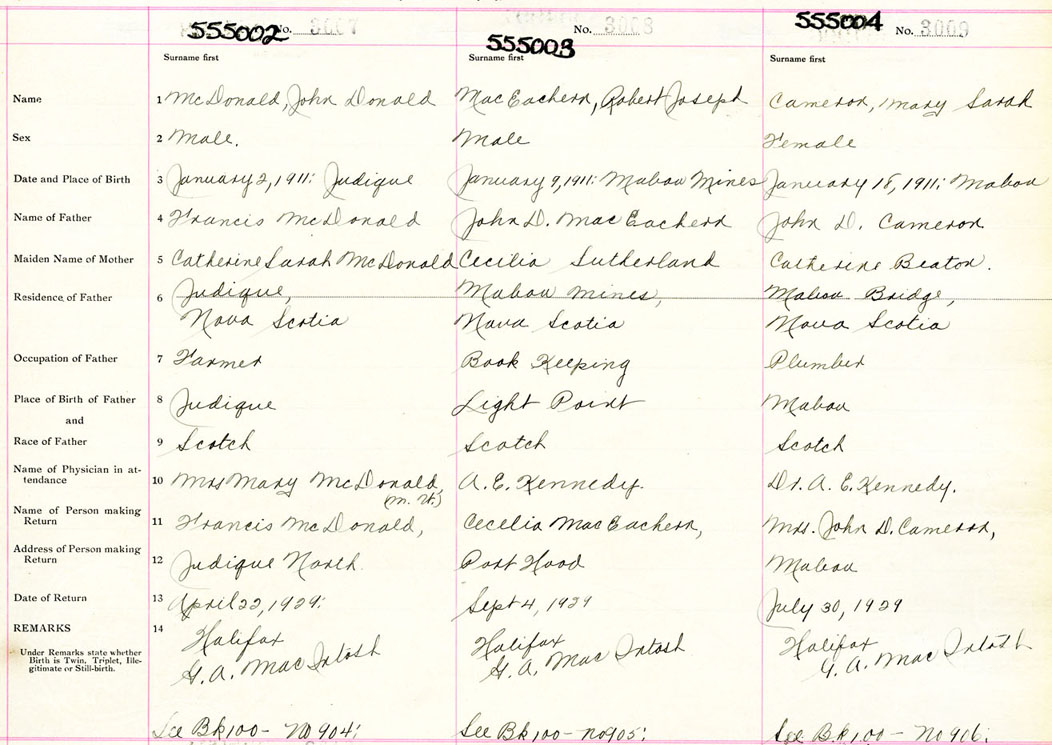 555002 No. 3007
555003 No. 3008
555004 No. 3009
Surname first
Surname first
Surname first
Name 1 McDonald, John Donald MacEachern, Robert Joseph Cameron, Mary Sarah
Sex 2 Male. Male Female
Date and Place of Birth 3 January 2, 1911: Judique January 9, 1911: Mabou Mines January 18, 1911: Mabou
Name of Father 4 Francis McDonald John D. MacEachern John D. Cameron
Maiden Name of Mother 5 Catherine Sarah McDonald Cecilia Sutherland Catherine Beaton.
Residence of Father 6 Judique, Mabou Mines, Mabou Bridge,
Nova Scotia Nova Scotia Nova Scotia
Occupation of Father 7 Farmer Book Keeping Plumber
Place of Birth of Father 8 Judique Light Point Mabou
and
Race of Father 9 Scotch Scotch Scotch
Name of Physician in at-
tendance 10 Mrs Mary McDonald, A. E. Kennedy. Dr. A. E. Kennedy.
(M. W.)
Name of Person making
Return 11 Francis McDonald, Cecelia MacEachern, Mrs. John D. Cameron,
Address of Person making
Return 12 Judique North. Port Hood Mabou
Date of Return 13 April 22, 1929: Sept 4, 1929 July 30, 1929
REMARKS 14 Halifax Halifax Halifax
Under Remarks state whether
Birth is Twin, Triplet, Ille-
gitimate or Still-birth.
G. A. MacIntosh G. A. MacIntosh G. A. MacIntosh
See Bk 100 - No 904: See Bk 100 - No 905: See Bk 100 - No 906: